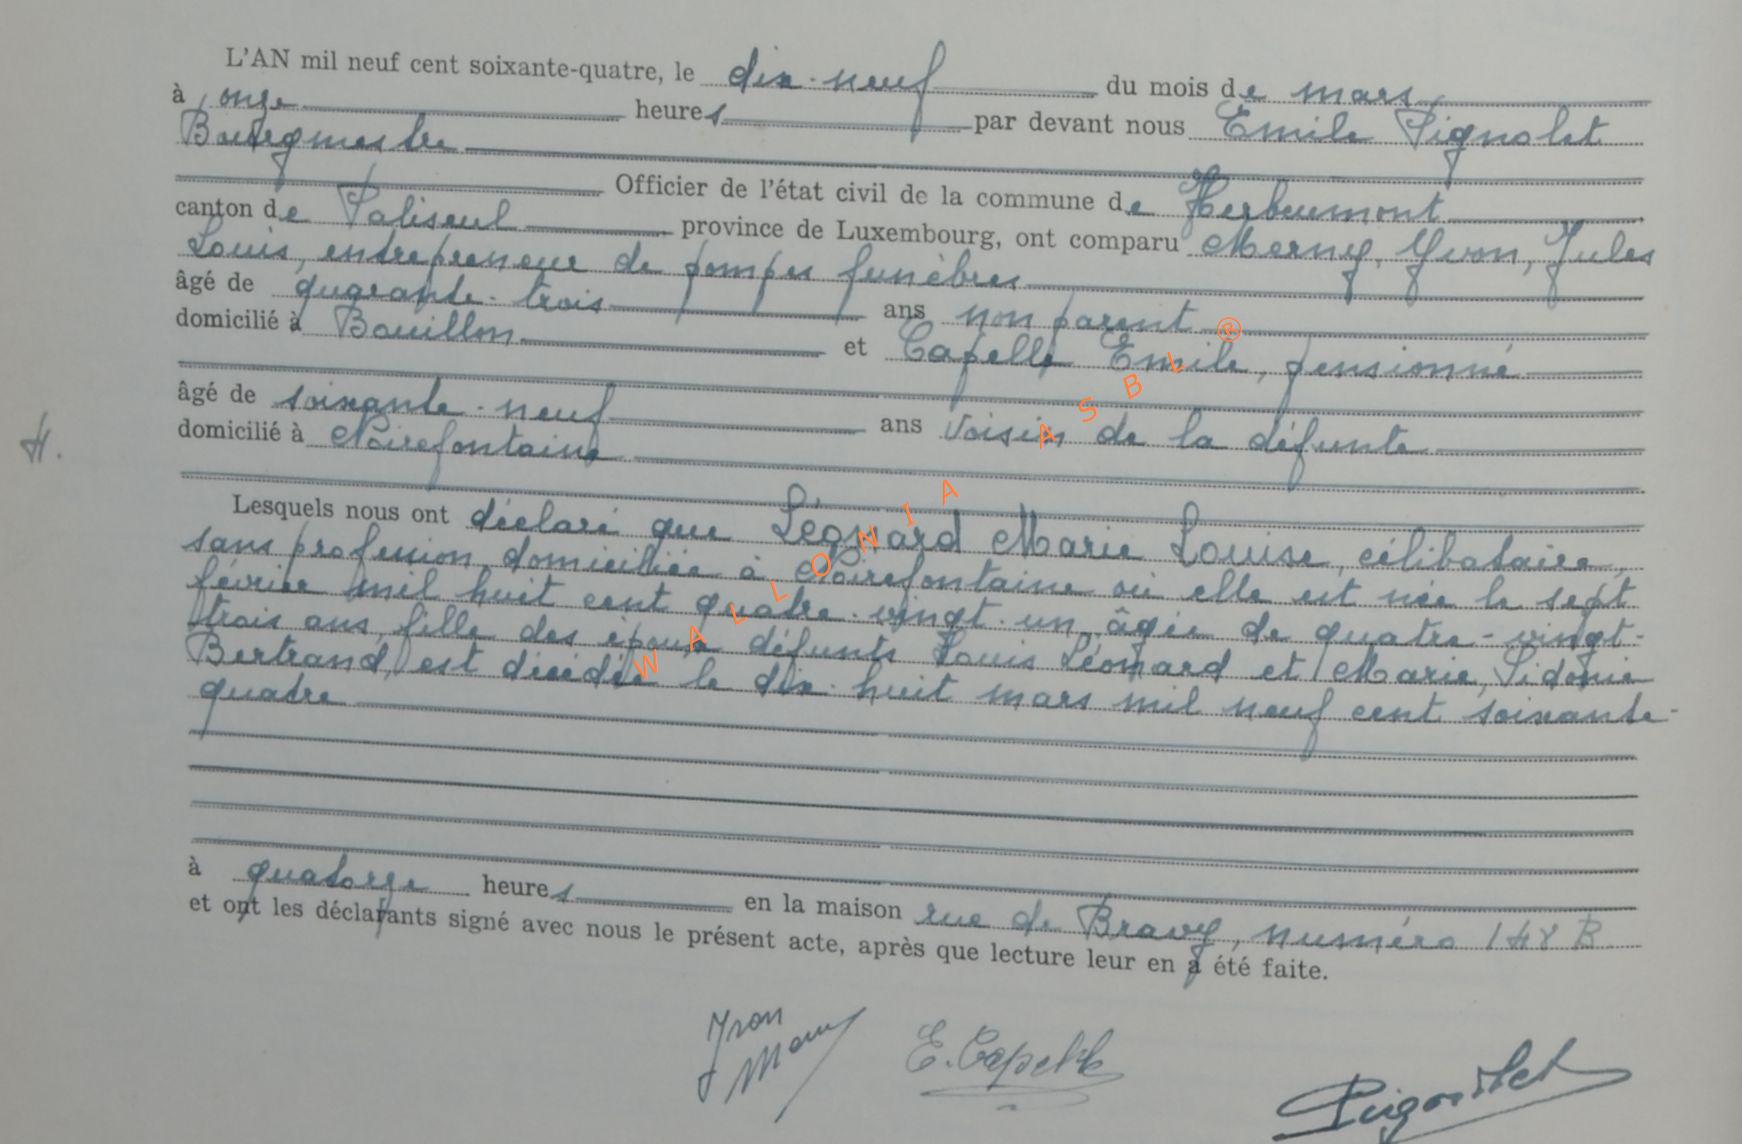 L'AN mil neuf cent soixante-quatre, le dix-neuf du mois de mars
à onze heures par devant nous Emile Pignolet
Bourgmestre
Officier de l'état civil de la commune de Herbeumont
canton de Paliseul province de Luxembourg, ont comparu Merny, Yvon, Jules
Louis, entrepreneur de pompes funèbres
âgé de quarante-trois ans non parent
domicilié à Bouillon et Capelle Emile, pensionné
âgé de soixante-neuf ans voisin de la défunte
domicilié à Noirefontaine
H.
Lesquels nous ont déclaré que Léonard Marie Louise, célibataire,
sans profession, domiciliée à Noirefontaine où elle est née le sept
février mil huit cent quatre-vingt-un, âgée de quatre-vingt-
trois ans, fille des époux défunts Louis Léonard et Marie, Sidonie
Bertrand, est décédée le dix-huit mars mil neuf cent soixante-
quatre
à quatorze heures en la maison rue de Bravy, numéro 148 B
et ont les déclarants signé avec nous le présent acte, après que lecture leur en a été faite.
Yvon
E. Capelle
Pignolet
WALLONIA ASBL ®